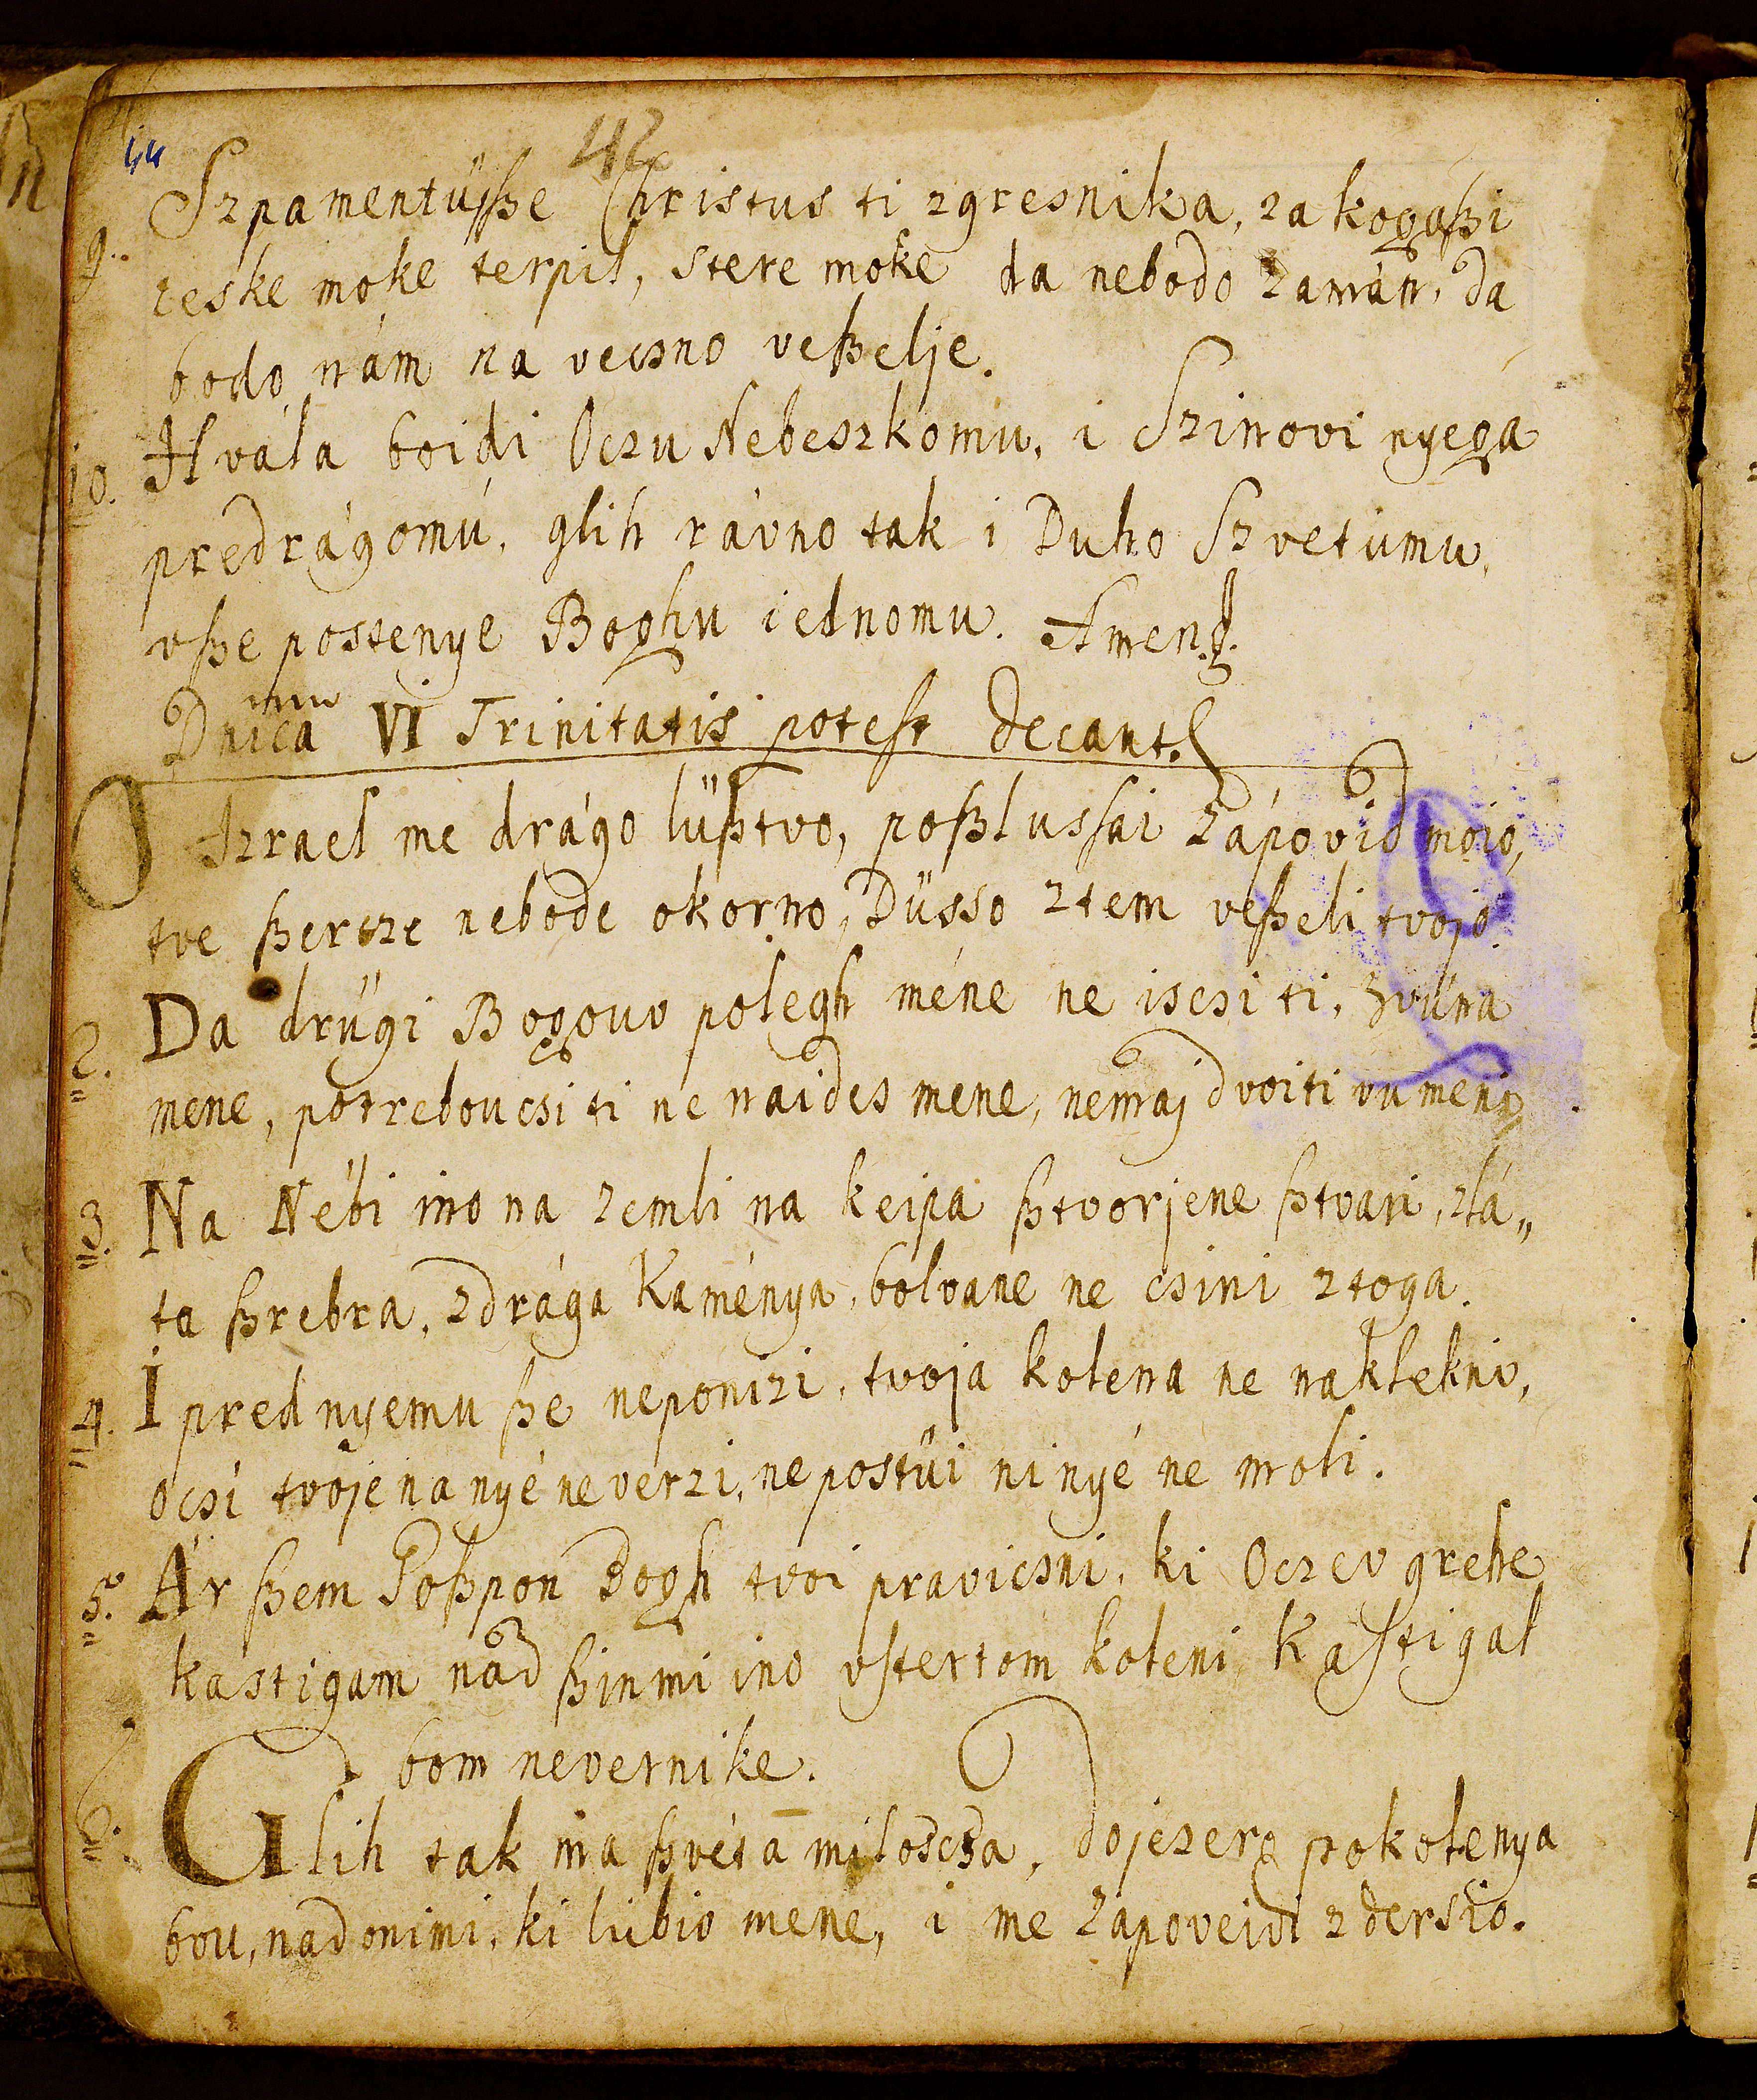 44
42
9. Szpamentüſße Christus ti zgresnika, za kogaßi
teske moke terpil, stere moke da nebodo zamán, da
bodo nám na vecsno veßelje.
10. Hvála boidi Oczu Nebeszkomu, i Szinovi nyega
predrágomú, glih rávno tak i Duho Szvetumu,
vße postenye Boghu iednomu. Amen.
Dnica VI Trinitatis poteſt decant.
O Izrael me drágo lüßtvo, poßlusſai zápovid moio,
tve ßercze nebode okorno, Düsso ztem veßeli tvojo.
2. Da drügi Bogouv polegh méne ne iscsi ti, zvüna
mene, potreboucsi ti ne naides mene, nemaj dvoiti vu meni,
3. Na Nébi ino na zemli na keipa ßtvorjene ßtvari, zlá„
ta ßrebra, zdrága Kaménya, bolvane ne csini ztoga.
4. I pred nyemu ße neponizi, tvoja kolena ne naklekni,
ocsi tvoje na nyé neverzi, ne postüi ni nyé ne moli.
5. Ár ßem Goßpon Bogh tvoi pravicsni, ki Oczev grehe
kastigam nad ßinmi ino vſtertom koleni, Kaſtigal
bom nevernike.
6. Glih tak ma ßvéta miloscsa, dojezero pokolenya
bou, nad onimi, ki lübio mene, i me zapoveidi zdersio.